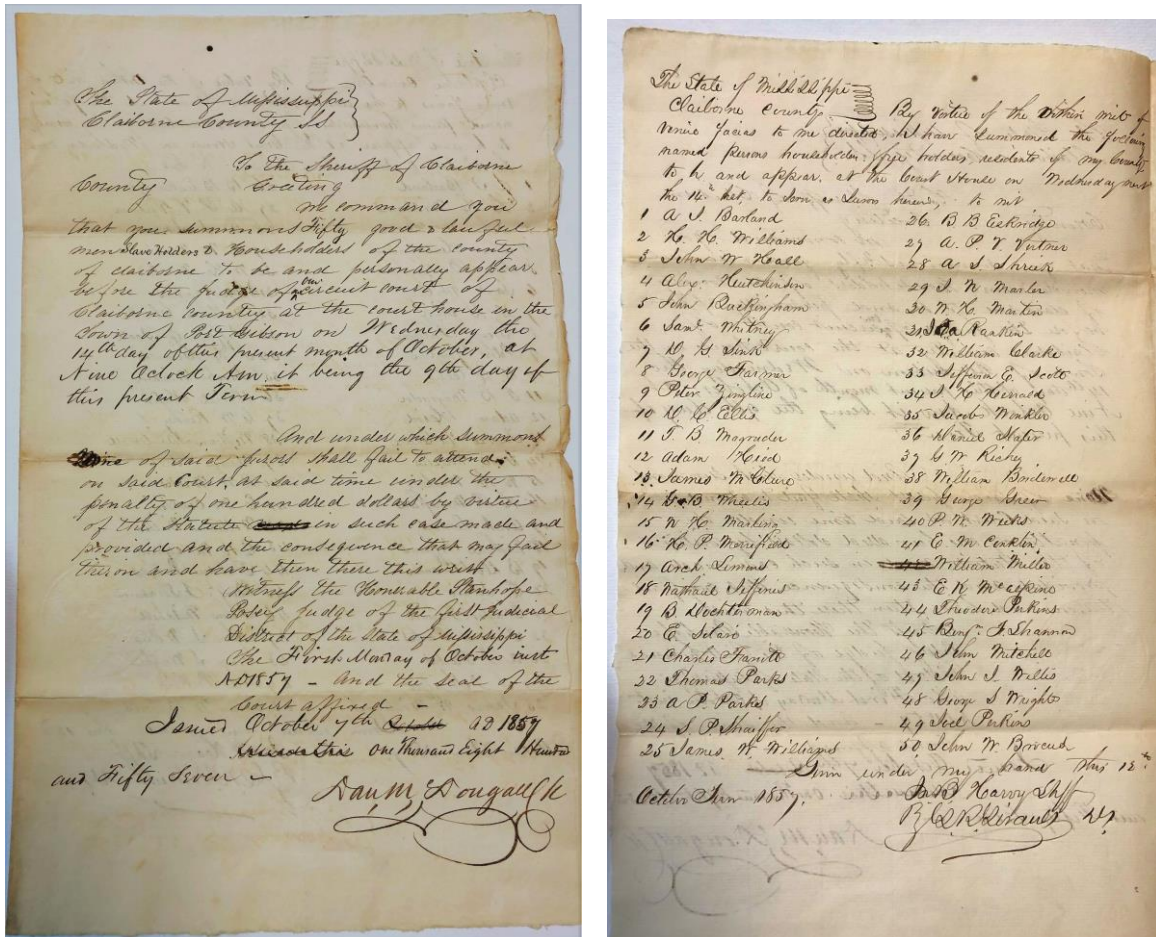 The State of Mississippi
Claiborne County SS
To the Sheriff of Claiborne
County Greeting
We command you
that you summons Fifty good & lawful
men Slave Holders & Householders of the county
of claiborne to be and personally appear
before the Judge of our circuit court of
Claiborne county at the court house in the
town of Port Gibson on Wednesday the
14th day of this present month of October, at
Nine Oclock Am it being the 9th day of
this present Term
And under which summons
None of said Jurors shall fail to attend
on said Court at said time under the
penalty of one hundred dollars by virtue
of the Statute in such case made and
provided and the consequence that may fall
theron and have then there this writ
Witness the Honerable Stanhope
Posey Judge of the first Judicial
District of the State of Mississippi
The First Monday of October inst
AD1857 – And the seal of the
Court affixed –
Issued October 7th AD 1857
One Thousand Eight Hundred
and Fifty Seven –
Dan McDougall Clk
The State of Mississippi
Claiborne County By virtue of the Within writ of
Venire facias to me directed, I have summoned the following
named persons householders free holders residents of my County
to be and appear at the Court House on Wednesday next
the 14" Inst, to serve as Jurors herein, to wit
1 A J Barland
2 H. H. Williams
3 John W Hall
4 Alex Hutchinson
5 John Buckingham
6 Saml Whitney
7 D G Sink
8 George Farmer
9 Peter Zingline
10 D C Ellis
11 T B Magruder
12 Adam
13 James McClure
14 B Wheelis
15 W H Marlin
16 H. P. Morrifield
17 Arch Simms
18 Nathanl Jeffries
19 B Dochterman
20 E.
21 Charles
22 Thomas Parks
23 A P. Parks
24 S. P. Shaiffer
25 James W. Williams
26. B B Eskridge
27 A. P. V. Vertner
28 A S Shriek
29 J. W Marler
30 W. H. Martin
31 Rankin
32 William Clarke
33 Jefferson E Scott
34 J H Herrald
35 Jacob Winkler
36 Daniel Slater
37 G W Richy
38 William Bridewell
39 George Greer
40 P. M Weeks
41 E M Conklin
42 William Miller
43 E K McAlpine
44 Theodore Perkins
45 Benjn F. Shannon
46 John Mitchell
47 John J Willis
48 George S Wright
49 Joel Perkins
50 John W. Broeud
Given under my hand this 12th
October Term 1857.
Jn B Harvy Shff
By Girault D.S.